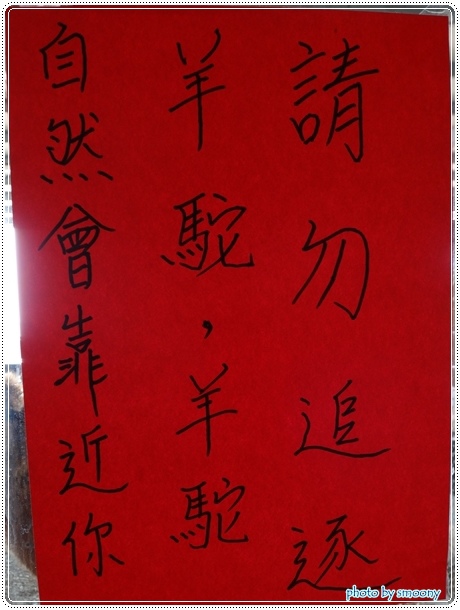 請勿追逐
羊駝，羊駝
自然會靠近你
photo by smoony